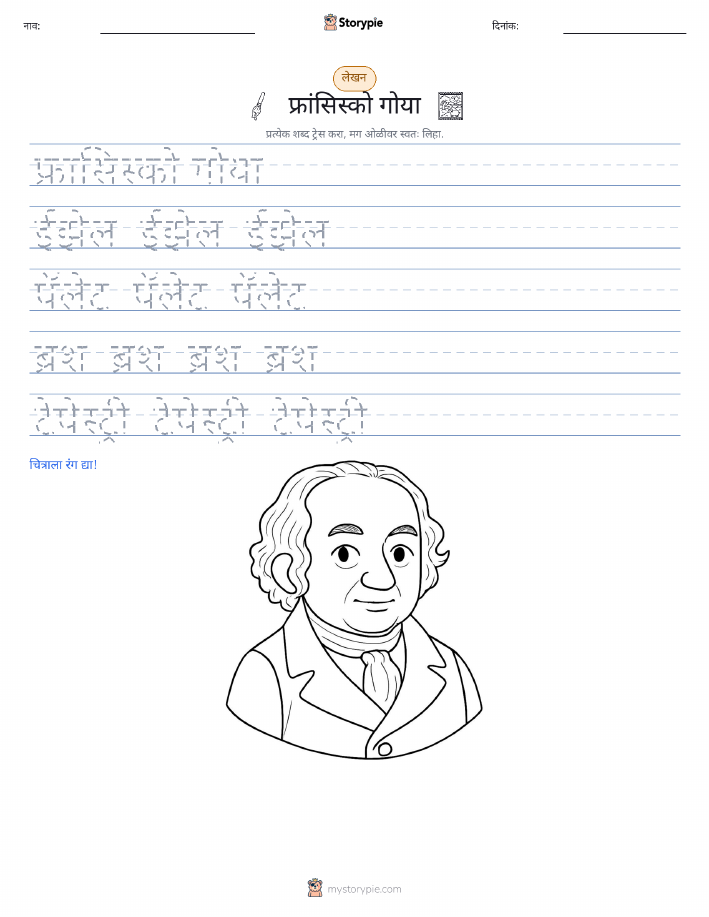 नाव:
Storypie
दिनांक:
लेखन
फ्रांसिस्को गोया
प्रत्येक शब्द ट्रेस करा, मग ओळीवर स्वतः लिहा.
फ्रांसिस्को गोया
ईझेल ईझेल ईझेल
पॅलेट पॅलेट पॅलेट
ब्रश ब्रश ब्रश ब्रश
टेपेस्ट्री टेपेस्ट्री टेपेस्ट्री
चित्राला रंग द्या!
mystorypie.com